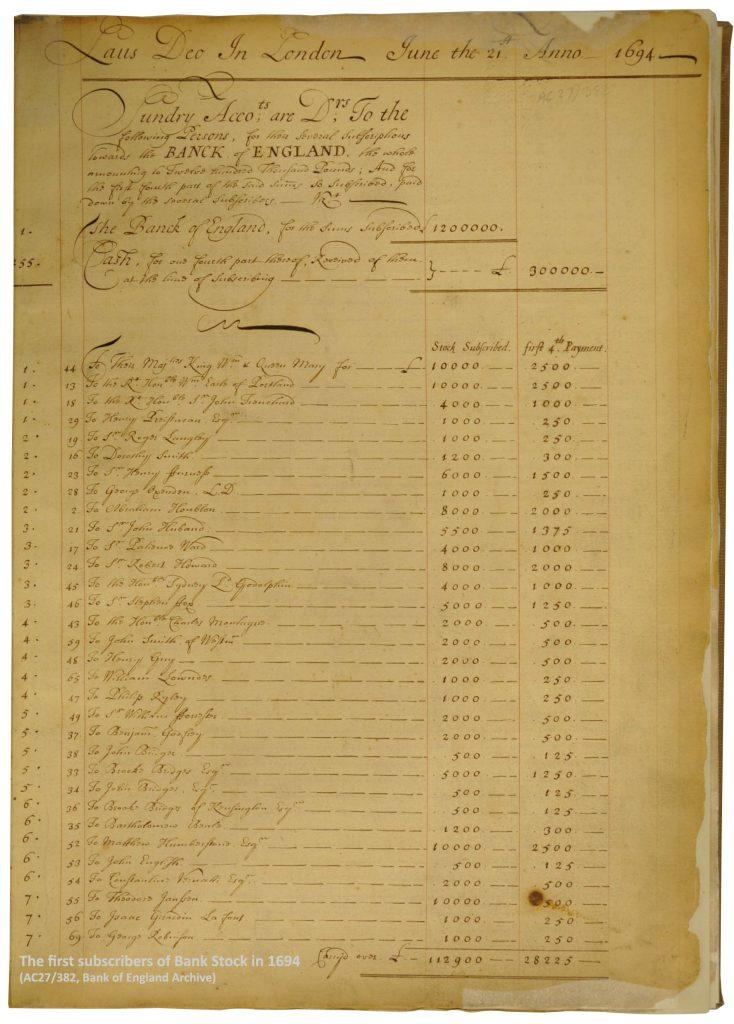 Laus Deo In London June the 21st Anno 1694
AC27/382
Sundry Acco.ts are Drs. To the
following Persons, for their several Subscriptions
towards the BANCK of ENGLAND, the whole
amounting to Twelve hundred Thousand Pounds; And for
the first fourth part of the said Summs so Subscribed, paid
down by the several Subscribers. Vizt
1. The Banck of England, for the Sums Subscribed 1200000.
255. Cash, for one fourth part thereof, Received of them
at the time of Subscribing } £ 300000.
Stock Subscribed. first 4th. Payment
1. 44 To Their Majties King Wm & Queen Mary for £ 10000 2500
1. 13 To the Rt Honble Wm Earle of Portland 10000 2500
1. 18 To the Rt Honble Sr John Trenchard 4000 1000
1. 29 To Henry Prestman Esqr 1000 250
2. 19 To Sr Roger Langley 1000 250
2. 16 To Dorothy Smith 1200 300
2. 23 To Sr Henry Furness 6000 1500
2. 28 To George Oxenden L.D. 1000 250
2. 2 To Abraham Houblon 8000 2000
3. 21 To Sr John Huband 5500 1375
3. 17 To Sr Patience Ward 4000 1000
3. 24 To Sr Robert Howard 8000 2000
3. 45 To the Honble Sydney Ld Godolphin 4000 1000
3. 46 To Sr Stephen Fox 5000 1250
4. 43 To the Honble Charles Montague 2000 500
4. 59 To John Smith of Westmr 2000 500
4. 48 To Henry Guy 2000 500
4. 65 To William Lowndes 1000 250
4. 47 To Philip Ryley 1000 250
5. 49 To Sr William 2000 500
5. 37 To Benjam: Godfrey 2000 500
5. 38 To John Bridges 500 125
5. 33 To Brook Bridges Esqr 5000 1250
5. 34 To John Bridges, Esqr 500 125
6. 36 To Brook Bridges of Kensington Esqr 500 125
6. 35 To Bartholomew 1200 300
6. 52 To Matthew Humberstone Esqr 10000 2500
6. 53 To John English 500 125
6. 54 To Constantine Vernatti Esqr 2000 500
7. 55 To Theodore Janssen 10000 500
7. 56 To Isaac Girardin La font 1000 250
7. 69 To George Robinson 1000 250
Carry'd over £ 112900 28225
The first subscribers of Bank Stock in 1694
(AC27/382, Bank of England Archive)